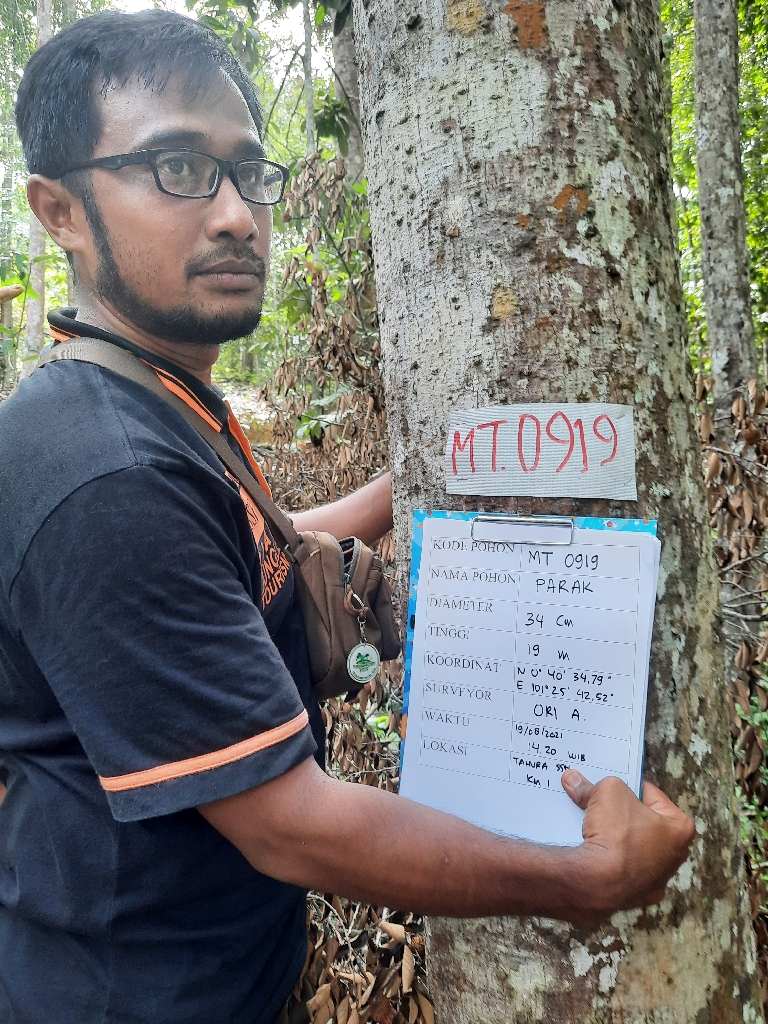 MT.0919
KODE POHON MT 0919
NAMA POHON PARAK
DIAMETER 34 Cm
TINGGI 19 m
KOORDINAT N 0° 40' 34,79"
E 101° 25' 42,52"
SURVEYOR ORI A.
WAKTU 19/08/2021
14.20 WIB
LOKASI TAHURA
KM 1